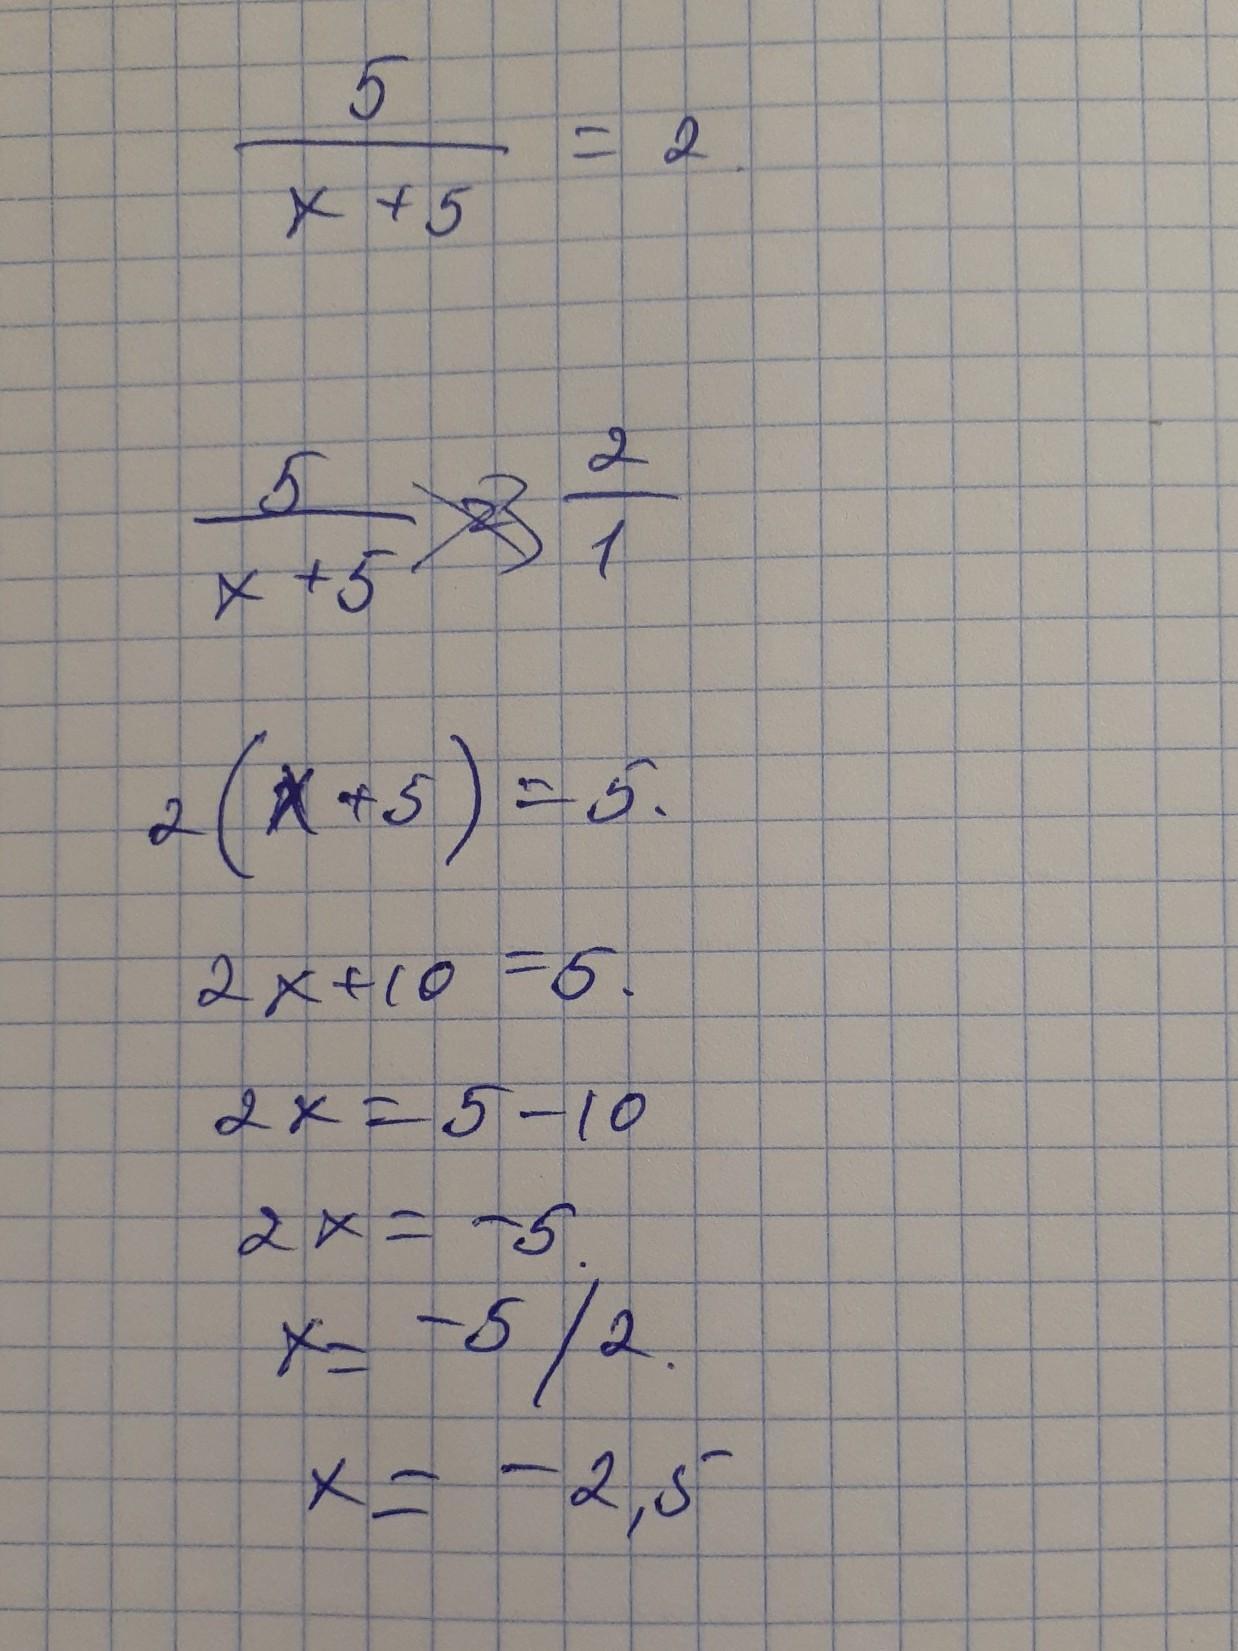 5/(x+5) = 2.
5/(x+5) = 2/1
2(x+5)=5.
2x+10=5.
2x=5-10
2x=-5.
x=-5/2.
x=-2,5